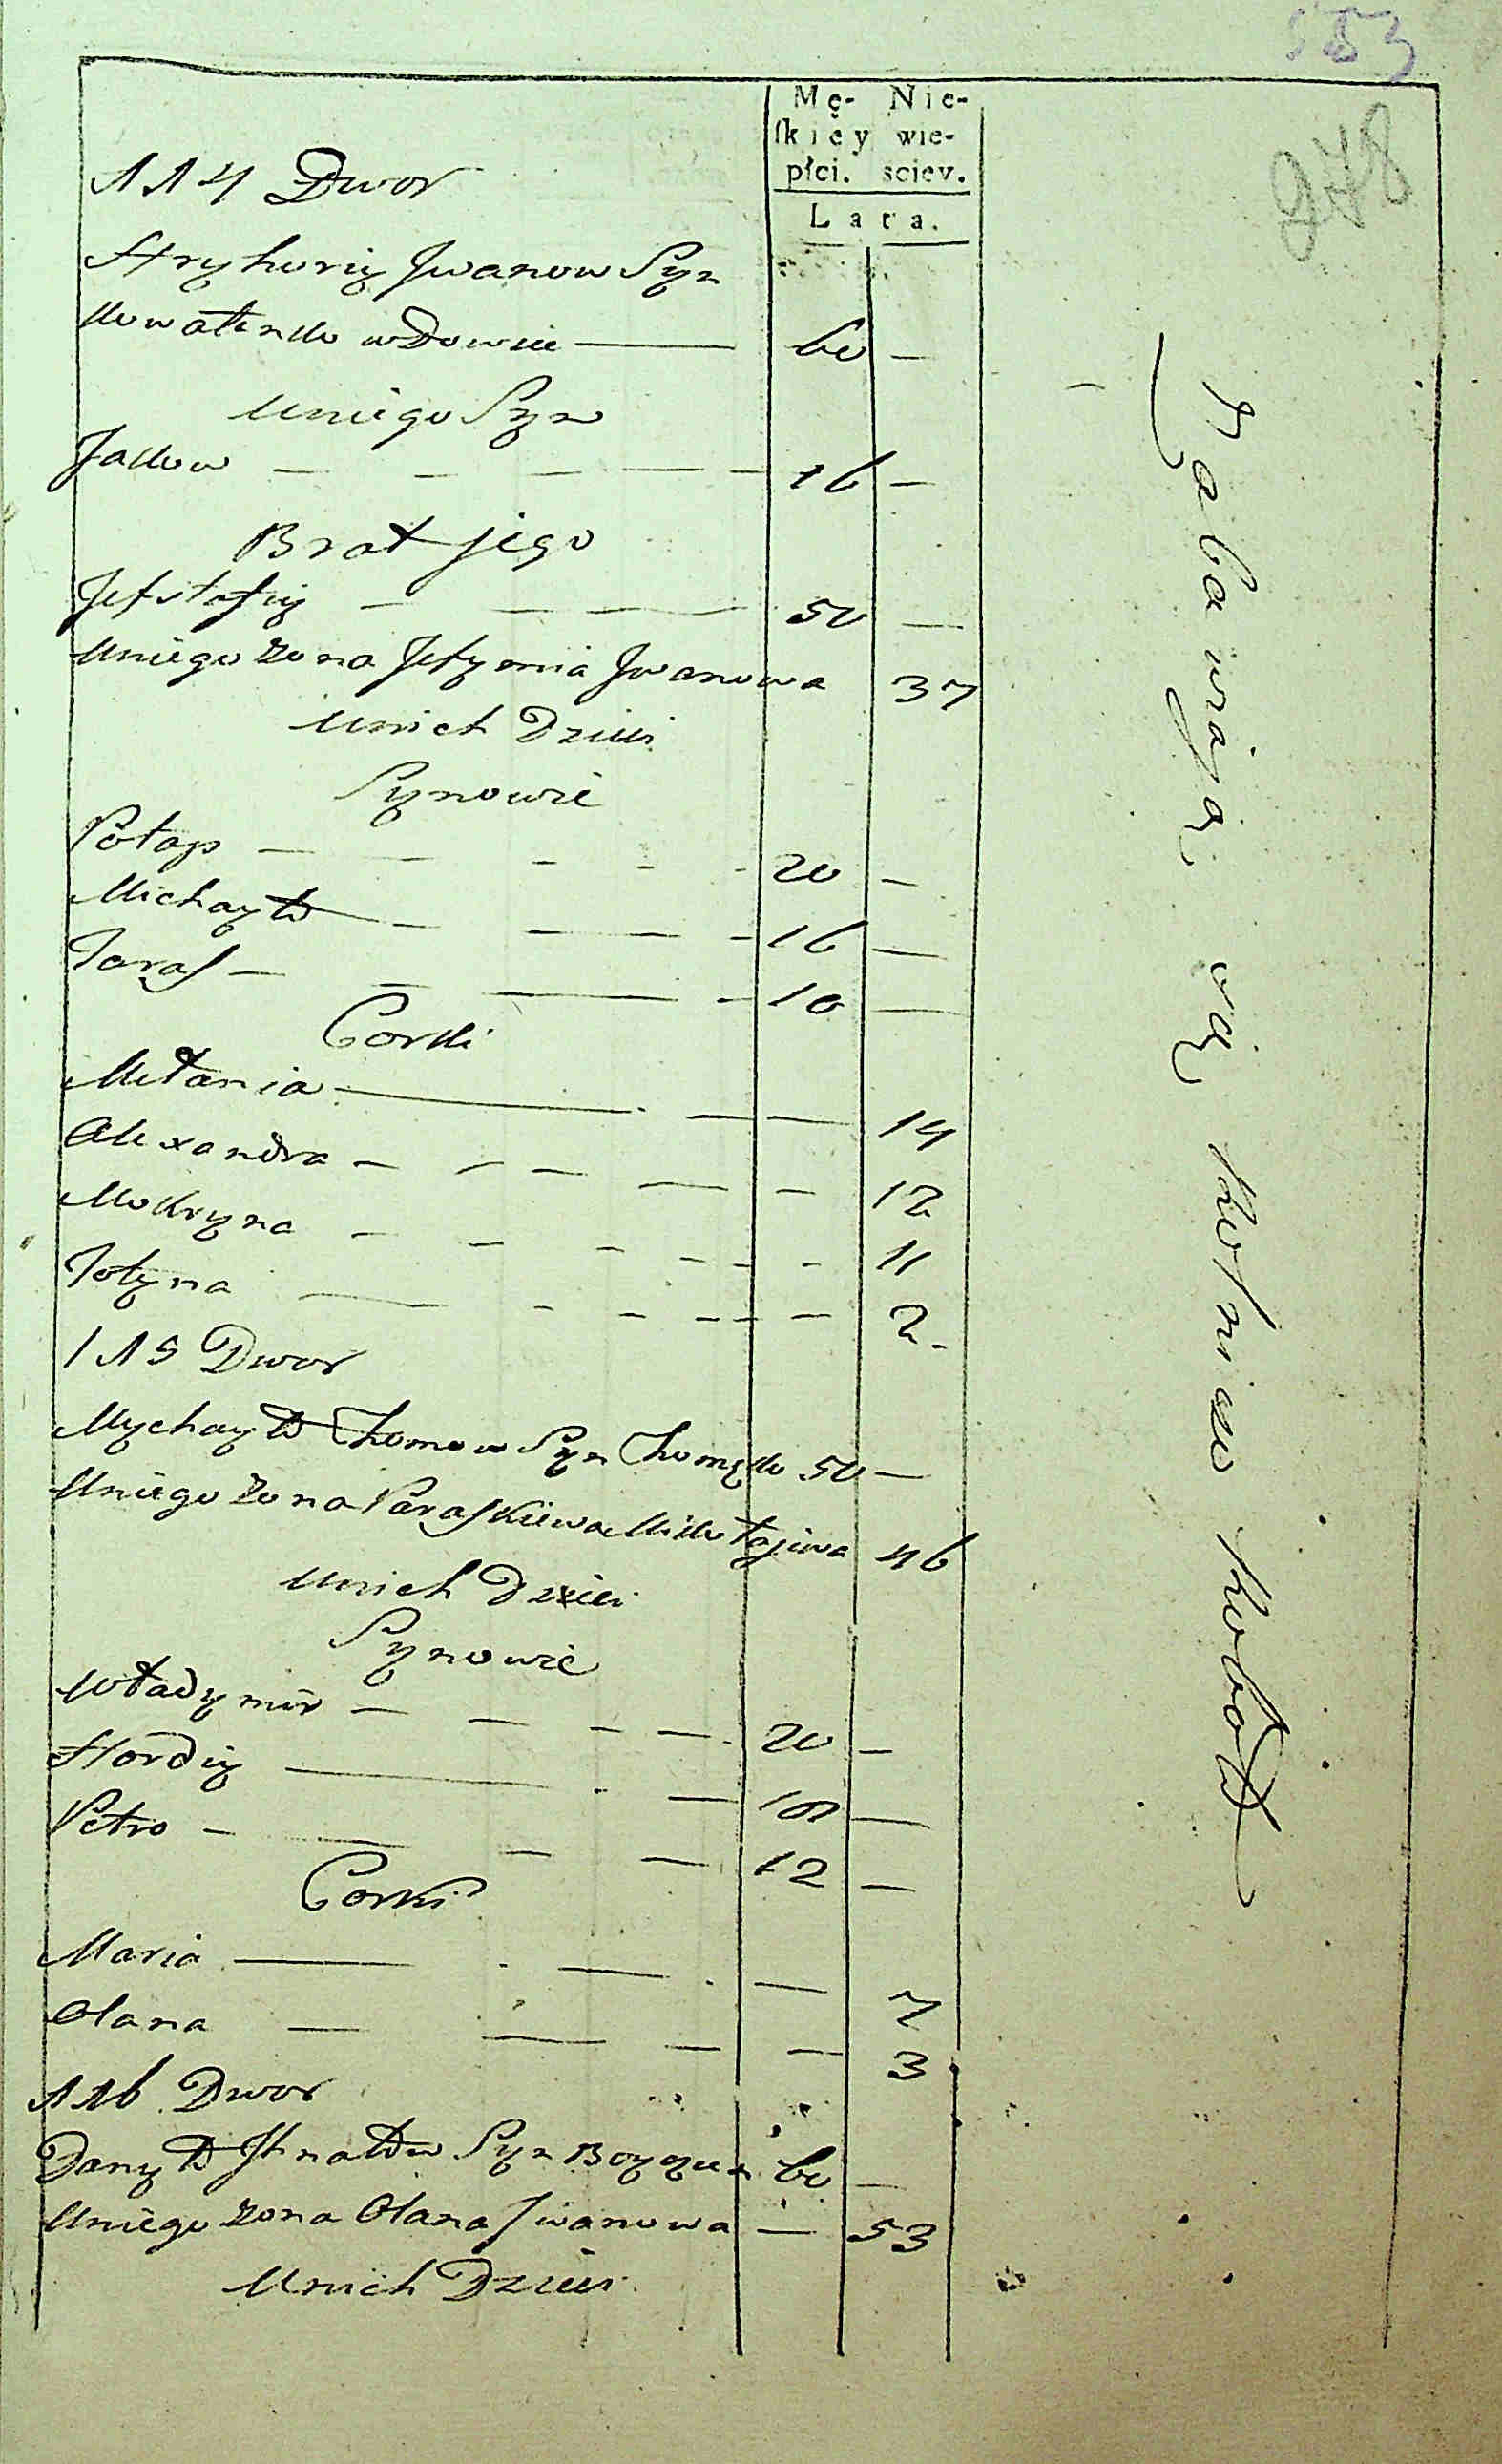 553
278
Mę- Nie-
ſkiey wie-
płci. sciey.
Lata.
114 Dwor
Hryhoriy Jwanow Syn
Kowalenko wdowiec — 60 —
U niego Syn
Jakow — 16 —
Brat jego
Jefstafiy — 50 —
U niego Zona Jefymia Jwanowa 37
U nich Dzieci
Synowie
Potap — 20 —
Michayło — 16 —
Taras — 10 —
Corki
Mełania — 14
Alexandra — 12
Mokryna — 11
1 15 Dwor
Mychayło Chomow Syn Chomęko 50 —
U niego Zona Paraskiewa Mikołajiwa 46
U nich Dzieci
Synowie
Władymir — 20 —
Hordiy — 18 —
Petro — 12 —
Corki
Maria — 7
Olana — 3
116 Dwor
Danyło Jhnatow Syn 60 —
U niego Zona Olana Jwanowa — 53
U nich Dzieci
Zabawiają się